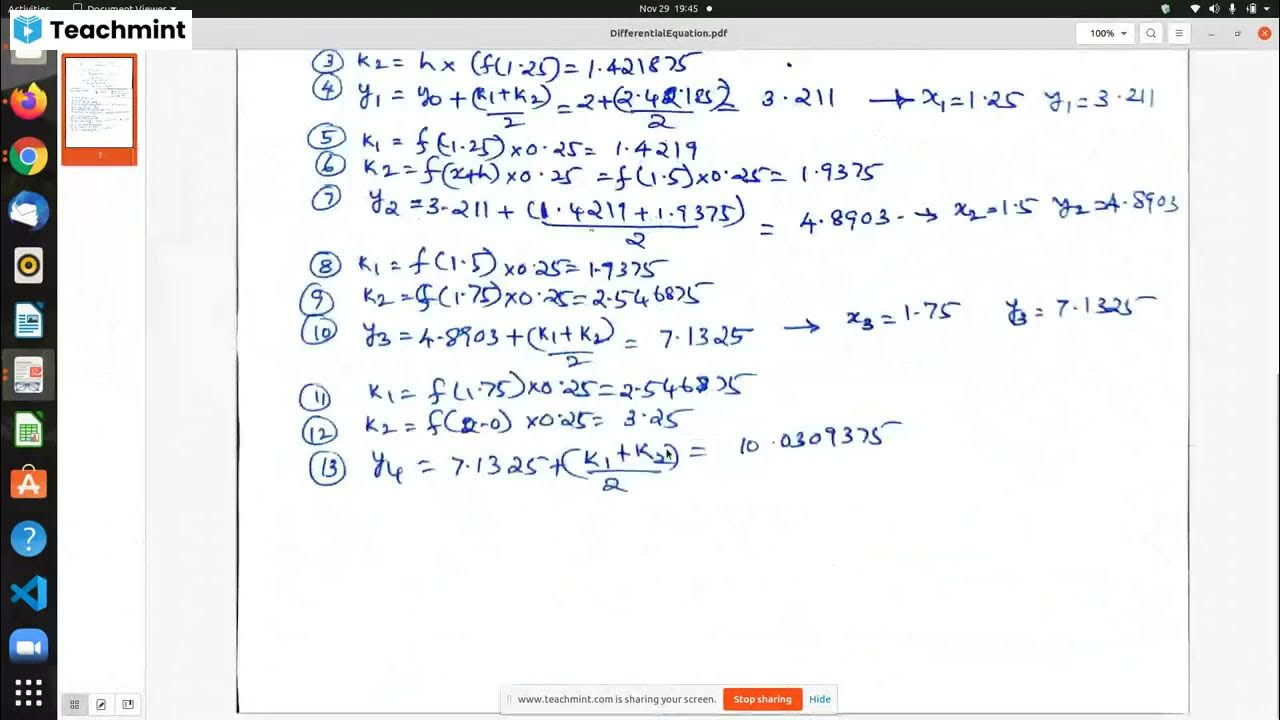 Activities
Document Viewer
Nov 29 19:45
Teachmint
DifferentialEquation.pdf
100%
7
③ K2 = h x (f(1.25) = 1.421875
④ y1 = y0 + (K1+K2)/2 = 2+(2.422185)/2 = 3.211 → x1=1.25 y1=3.211
⑤ K1 = f(1.25)x0.25= 1.4219
⑥ K2 = f(x+h)x0.25 = f(1.5)x0.25= 1.9375
⑦ y2 = 3.211 + (1.4219+1.9375)/2 = 4.8903 → x2=1.5 y2=4.8903
⑧ K1 = f(1.5)x0.25=1.9375
⑨ K2 = f(1.75)x0.25=2.546875
⑩ y3 = 4.8903 +(K1+K2)/2 = 7.1325 → x3=1.75 y3=7.1325
⑪ K1 = f(1.75)x0.25=2.546875
⑫ K2 = f(2.0) x0.25= 3.25
⑬ y4 = 7.1325+(K1+K2)/2 = 10.0309375
www.teachmint.com is sharing your screen. Stop sharing Hide